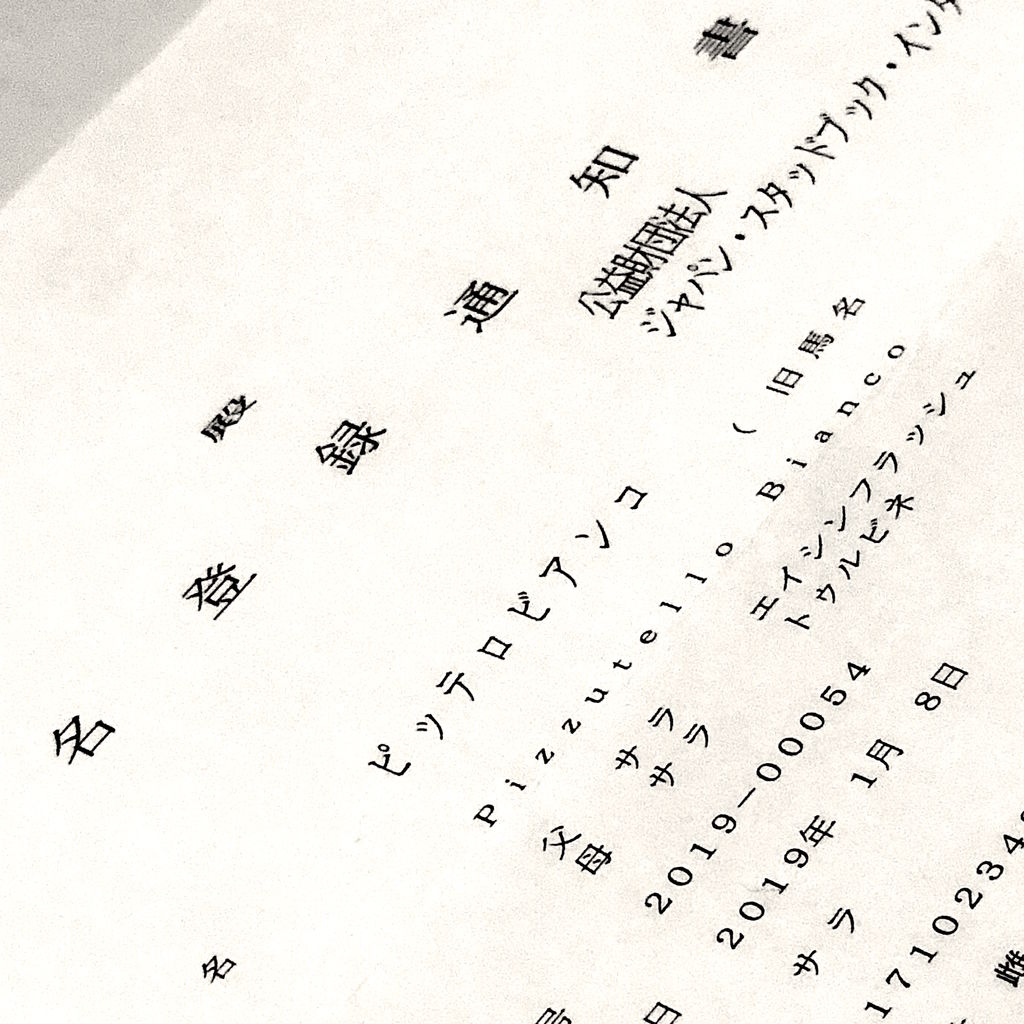 名登録通知書
殿
公益財団法人
ジャパン・スタッドブック・イン
名 ピッテロビアンコ (旧馬名
Pizzutello Bianco
父 サラ エイシンフラッシュ
母 サラ トウルビネ
2019-00054
日 2019年 1月 8日
サラ
1710234
雌